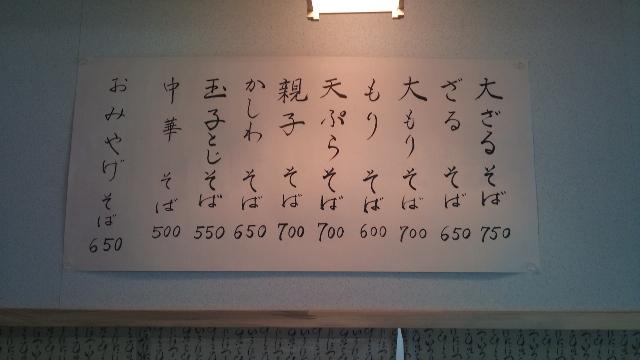 大ざるそば 750
ざるそば 650
大もりそば 700
もりそば 600
天ぷらそば 700
親子そば 700
かしわそば 650
玉子とじそば 550
中華そば 500
おみやげそば 650